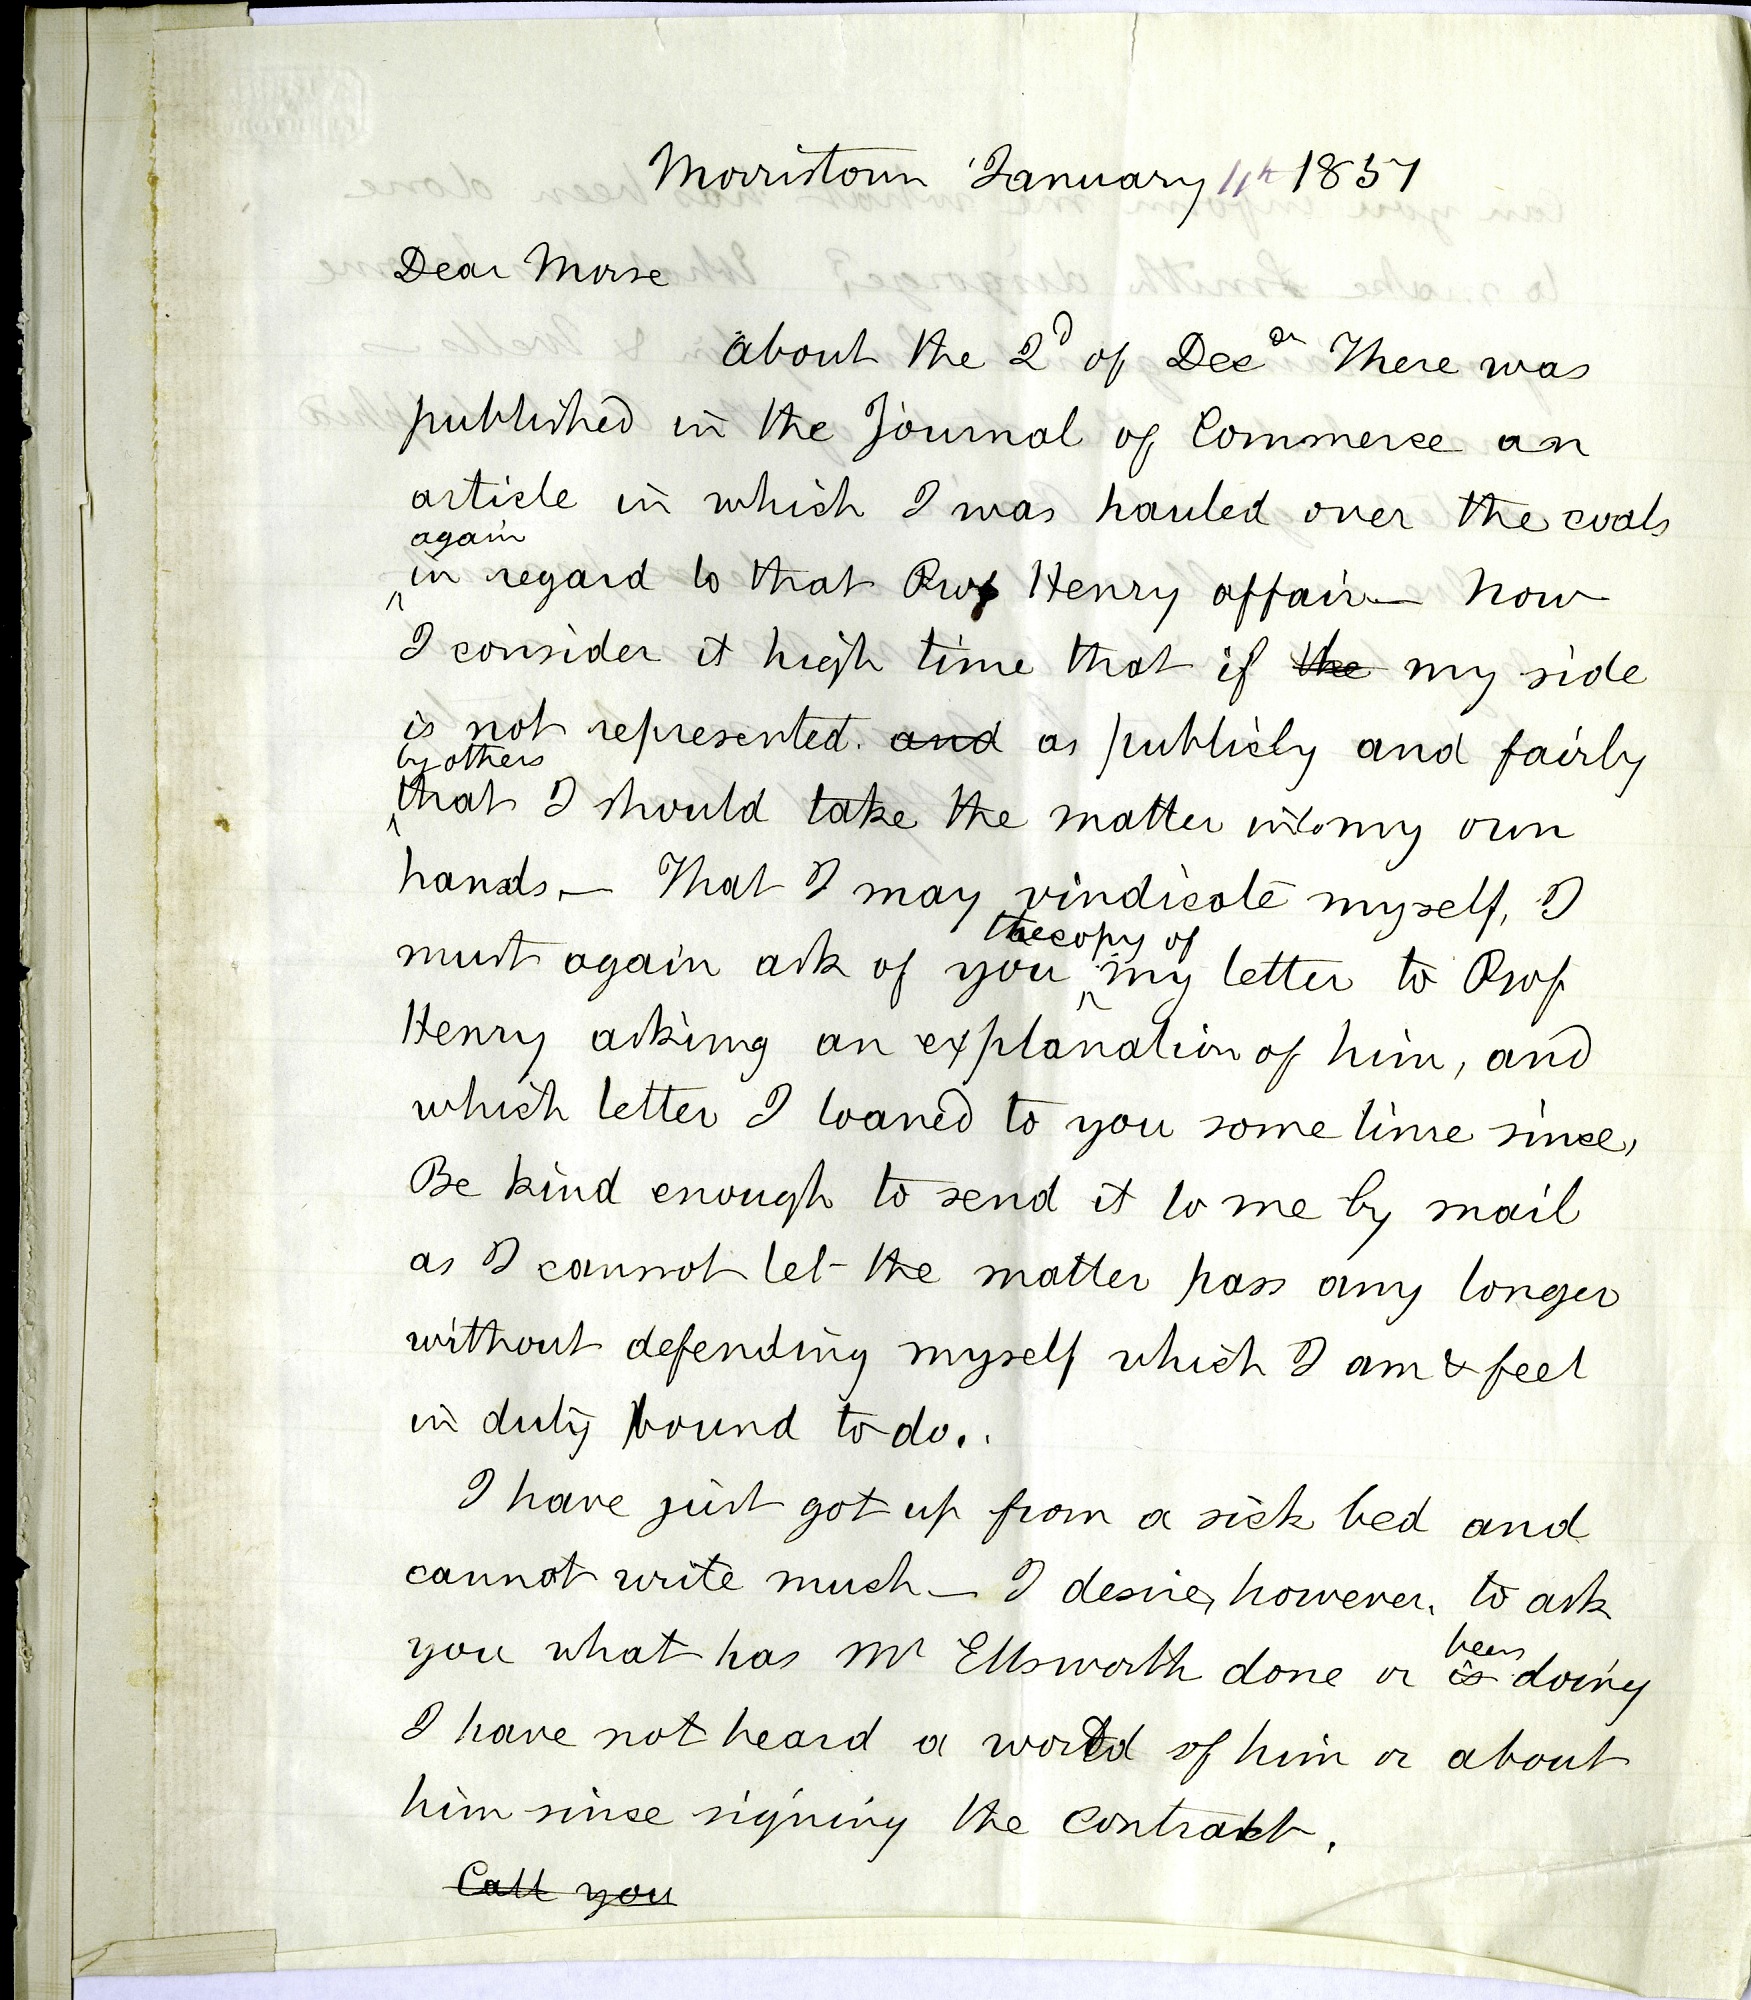 Morristown January 11th 1857
Dear Morse
about the 2d of Decr There was
published in the Journal of Commerce an
article in which I was hauled over the coals
again
in regard to that Prof Henry affair — Now
I consider it high time that if the my side
is not represented. and as publicly and fairly
by others
that I should take the matter into my own
hands. — That I may vindicate myself, I
the copy of
must again ask of you my letter to Prof
Henry asking an explanation of him, and
which letter I loaned to you some time since,
Be kind enough to send it to me by mail
as I cannot let the matter pass any longer
without defending myself which I am & feel
in duty bound to do..
I have just got up from a sick bed and
cannot write much — I desire, however, to ask
been
you what has Mr Ellsworth done or is doing
I have not heard a word of him or about
him since signing the contract.
Call you